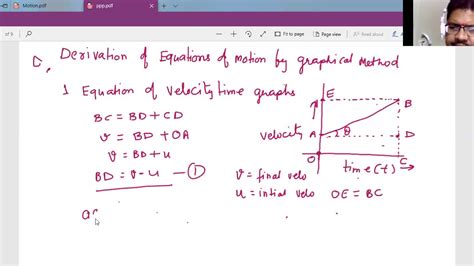 Motion.pdf
ppp.pdf
of 9
C. Derivation of Equations of motion by graphical method
1 Equation of velocity time graphs
BC = BD + CD
v = BD + OA
v = BD + u
BD = v - u — ①
E
B
velocity
A
θ
D
O
time (t)
C
v = final velo
u = intial velo OE = BC